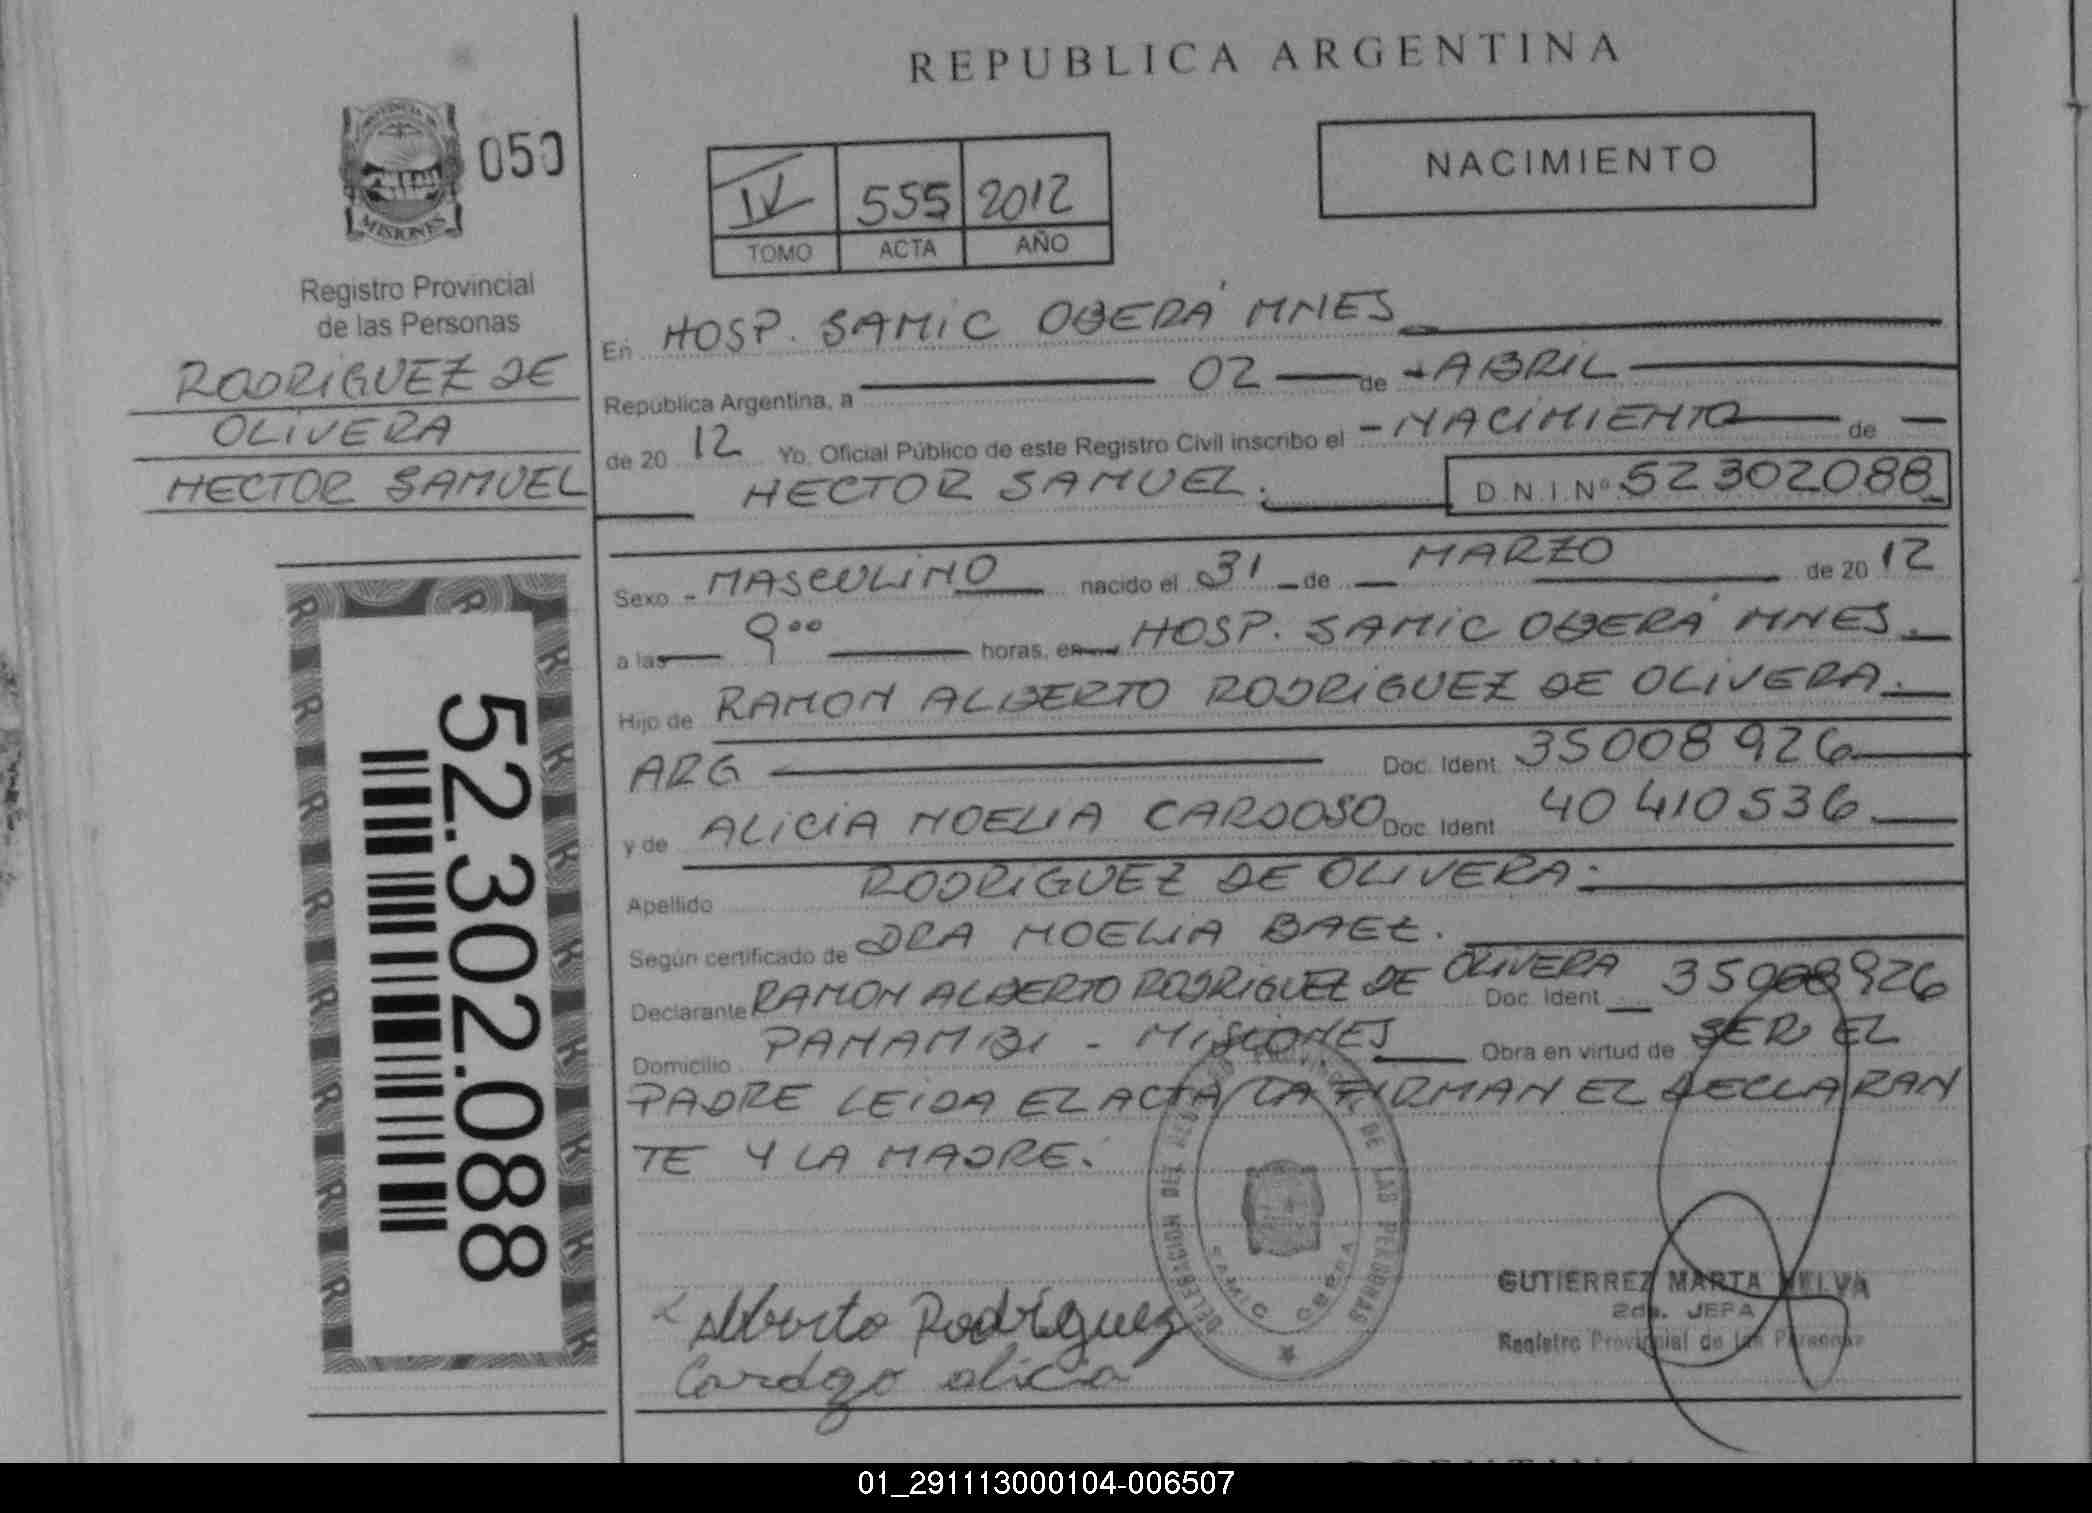 REPUBLICA ARGENTINA
PROVINCIA DE
MISIONES
050
IV 555 2012
TOMO ACTA AÑO
NACIMIENTO
Registro Provincial
de las Personas
RODRIGUEZ DE
OLIVERA
HECTOR SAMUEL
52.302.088
En HOSP. SAMIC OBERÁ MNES
República Argentina, a 02 de ABRIL
de 20 12 Yo, Oficial Público de este Registro Civil inscribo el NACIMIENTO de
HECTOR SAMUEL. D.N.I.Nº 52302088
Sexo MASCULINO nacido el 31 de MARZO de 20 12
a las 9 00 horas, en HOSP. SAMIC OBERÁ MNES.
Hijo de RAMON ALBERTO RODRIGUEZ DE OLIVERA.
ARG Doc. Ident. 35008926
y de ALICIA NOELIA CARDOSO Doc. Ident. 40410536
Apellido RODRIGUEZ DE OLIVERA.
Según certificado de DRA NOELIA BAEZ.
Declarante RAMON ALBERTO RODRIGUEZ DE OLIVERA Doc. Ident. 35008926
Domicilio PANAMBI - MISIONES Obra en virtud de SER EL
PADRE LEIDA EL ACTA LA FIRMAN EL DECLARAN
TE Y LA MADRE.
DELEGACION DEL REGISTRO PROVINCIAL DE LAS PERSONAS
SAMIC OBERA
GUTIERREZ MARTA NELVA
2da. JEFA
Registro Provincial de las Personas
Alberto Rodriguez
alicia
01_291113000104-006507